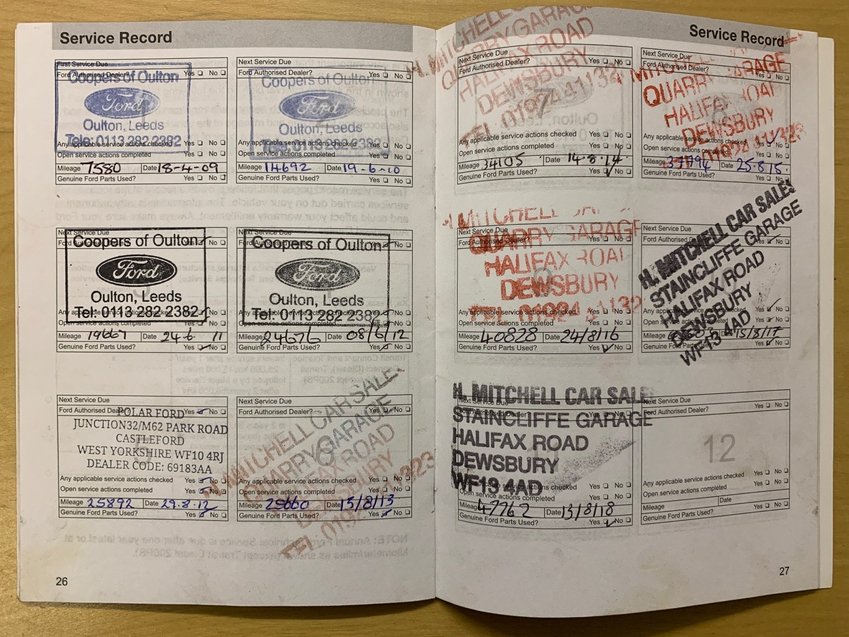 Service Record
First Service Due
Ford Authorised Dealer? Yes No
Coopers of Oulton
Ford
Oulton, Leeds
Tele: 0113 282 2382
Any applicable service actions checked Yes No
Open service actions completed Yes No
Mileage 7580 Date 18-4-09
Genuine Ford Parts Used? Yes No
Next Service Due
Ford Authorised Dealer? Yes No
Coopers of Oulton
Ford
Oulton, Leeds
Tele: 0113 282 2382
Any applicable service actions checked Yes No
Open service actions completed Yes No
Mileage 14692 Date 19-6-10
Genuine Ford Parts Used? Yes No
Next Service Due
Coopers of Oulton
Ford
Oulton, Leeds
Tel: 0113 282 2382
Mileage 19667 Date 24-6 11
Genuine Ford Parts Used? Yes No
Next Service Due
Coopers of Oulton
Ford
Oulton, Leeds
Tel: 0113 282 2382
Mileage 24676 Date 08/6/12
Genuine Ford Parts Used? Yes No
Next Service Due
Ford Authorised Dealer? Yes No
POLAR FORD
JUNCTION32/M62 PARK ROAD
CASTLEFORD
WEST YORKSHIRE WF10 4RJ
DEALER CODE: 69183AA
Any applicable service actions checked Yes No
Open service actions completed Yes No
Mileage 25892 Date 29.8.12
Genuine Ford Parts Used? Yes No
Next Service Due
Ford Authorised Dealer? Yes No
H. MITCHELL CAR SALE
QUARRY GARAGE
HALIFAX ROAD
DEWSBURY
Any applicable service actions checked Yes No
Open service actions completed Yes No
Mileage Date 15/8/13
Genuine Ford Parts Used? Yes No
26
Service Record
Next Service Due
Ford Authorised Dealer? Yes No
H. MITCHELL
QUARRY GARAGE
HALIFAX ROAD
DEWSBURY
Any applicable service actions checked Yes No
Open service actions completed Yes No
Mileage 34105 Date 14-8-14
Genuine Ford Parts Used? Yes No
Next Service Due
Ford Authorised Dealer? Yes No
QUARRY GARAGE
HALIFAX ROAD
DEWSBURY
Any applicable service actions checked Yes No
Open service actions completed Yes No
Mileage Date 25-8/15
Genuine Ford Parts Used? Yes No
Next Service Due
Ford Authorised Dealer? Yes No
MITCHELL
QUARRY GARAGE
HALIFAX ROAD
DEWSBURY
Any applicable service actions checked Yes No
Open service actions completed Yes No
Mileage 40828 Date 24/8/16
Genuine Ford Parts Used? Yes No
Next Service Due
H. MITCHELL CAR SALES
STAINCLIFFE GARAGE
HALIFAX ROAD
DEWSBURY
WF13 4AD
Mileage Date 15/8/17
Genuine Ford Parts Used? Yes No
H. MITCHELL CAR SALE
STAINCLIFFE GARAGE
HALIFAX ROAD
DEWSBURY
WF13 4AD
Open service actions completed Yes No
Mileage 47762 Date 15/8/18
Genuine Ford Parts Used? Yes No
Next Service Due
Ford Authorised Dealer? Yes No
12
Any applicable service actions checked Yes No
Open service actions completed Yes No
Mileage Date
Genuine Ford Parts Used? Yes No
27